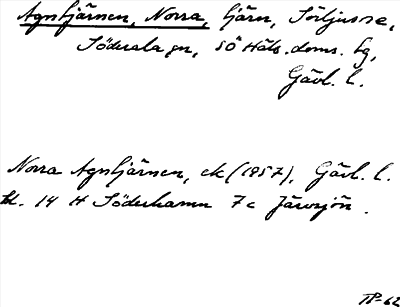 Agnstjärnen, Norra, tjärn, Sörljusne,
Söderala sn, SÖ Häls. doms. tg,
Gävl. l.
Norra Agnstjärnen, ek (1957), Gävl. l.
bl. 14 H Söderhamn 7 c Järvsjön.
TP-62